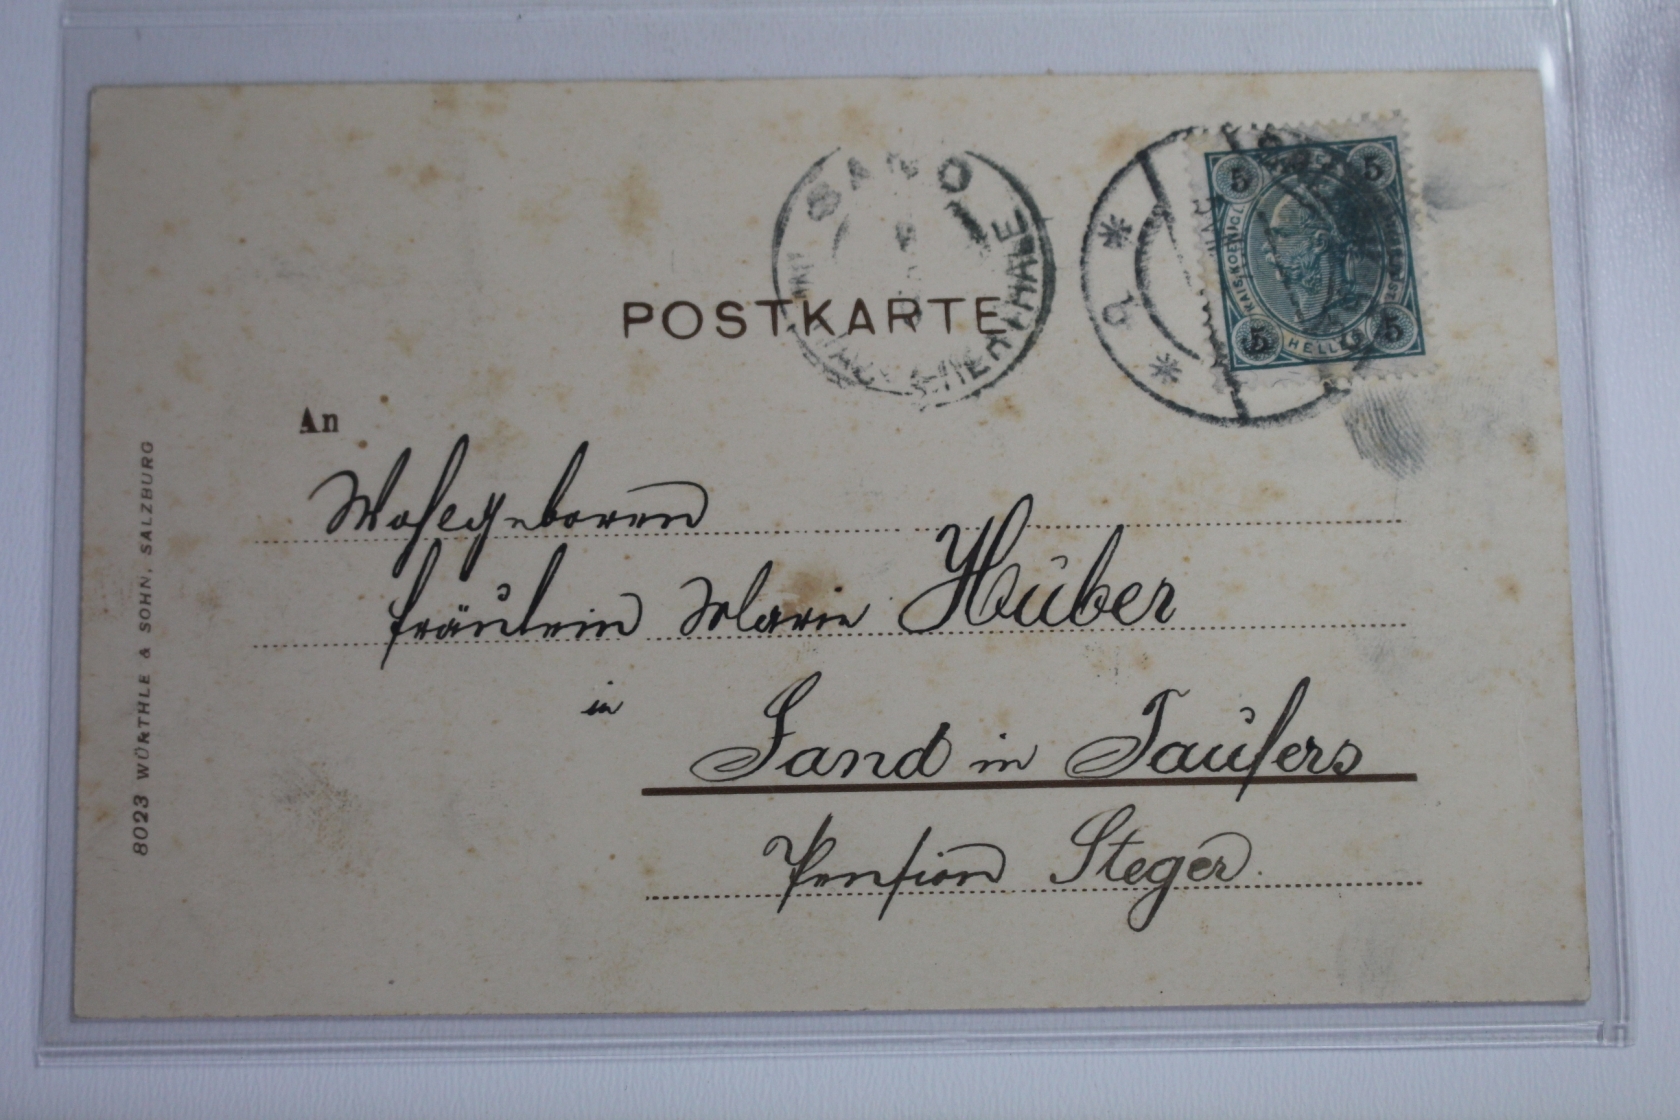 SAND
POSTKARTE
5 5
KAIS.KOENIGL.
5 HELLER 5
An
Wohlgeboren
Fräulein Marie Huber
in
Sand in Taufers
Pension Steger.
8023 WÜRTHLE & SOHN, SALZBURG